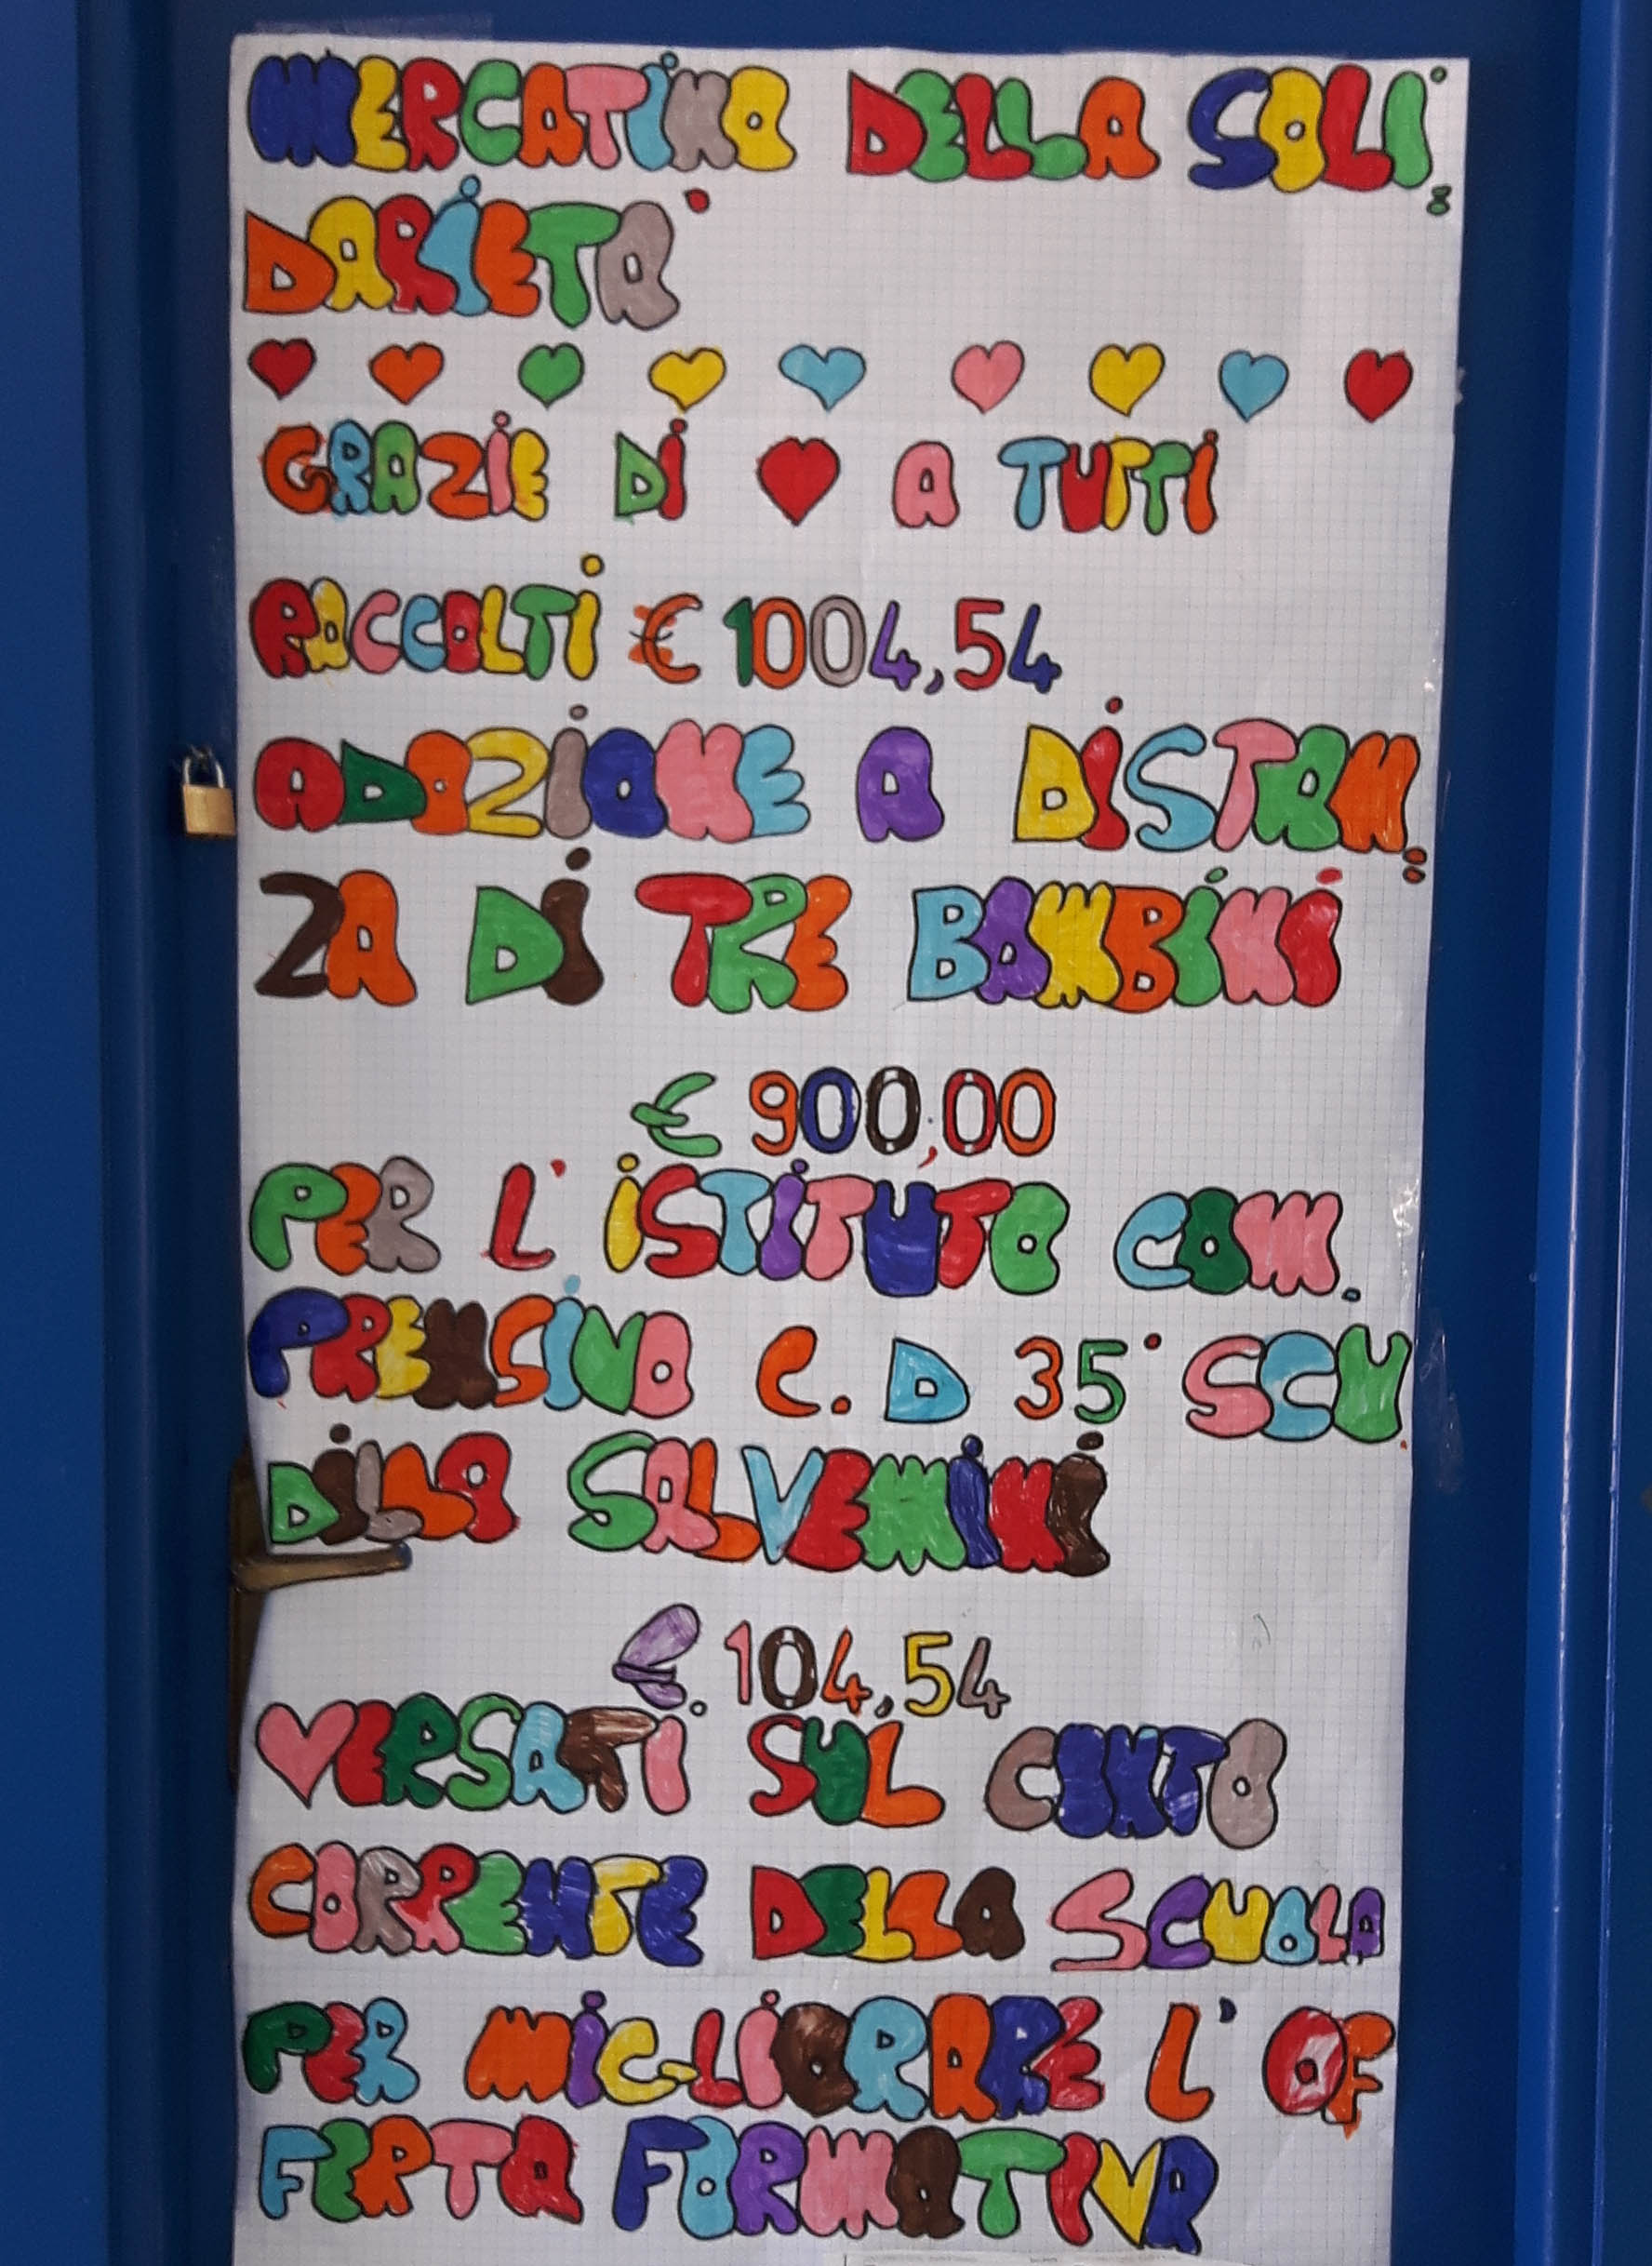 MERCATINO DELLA SOLI:
DARIETA'
GRAZIE DI ♥ A TUTTI
RACCOLTI € 1004,54
ADOZIONE A DISTAN:
ZA DI TRE BAMBINI
€ 900,00
PER L'ISTITUTO COM.
PRENSIVO C. D 35° SCU
DILLA SALVEMINI
€. 104,54
VERSATI SUL CONTO
CORRENTE DELLA SCUOLA
PER MIGLIORARE L'OF
FERTA FORMATIVA